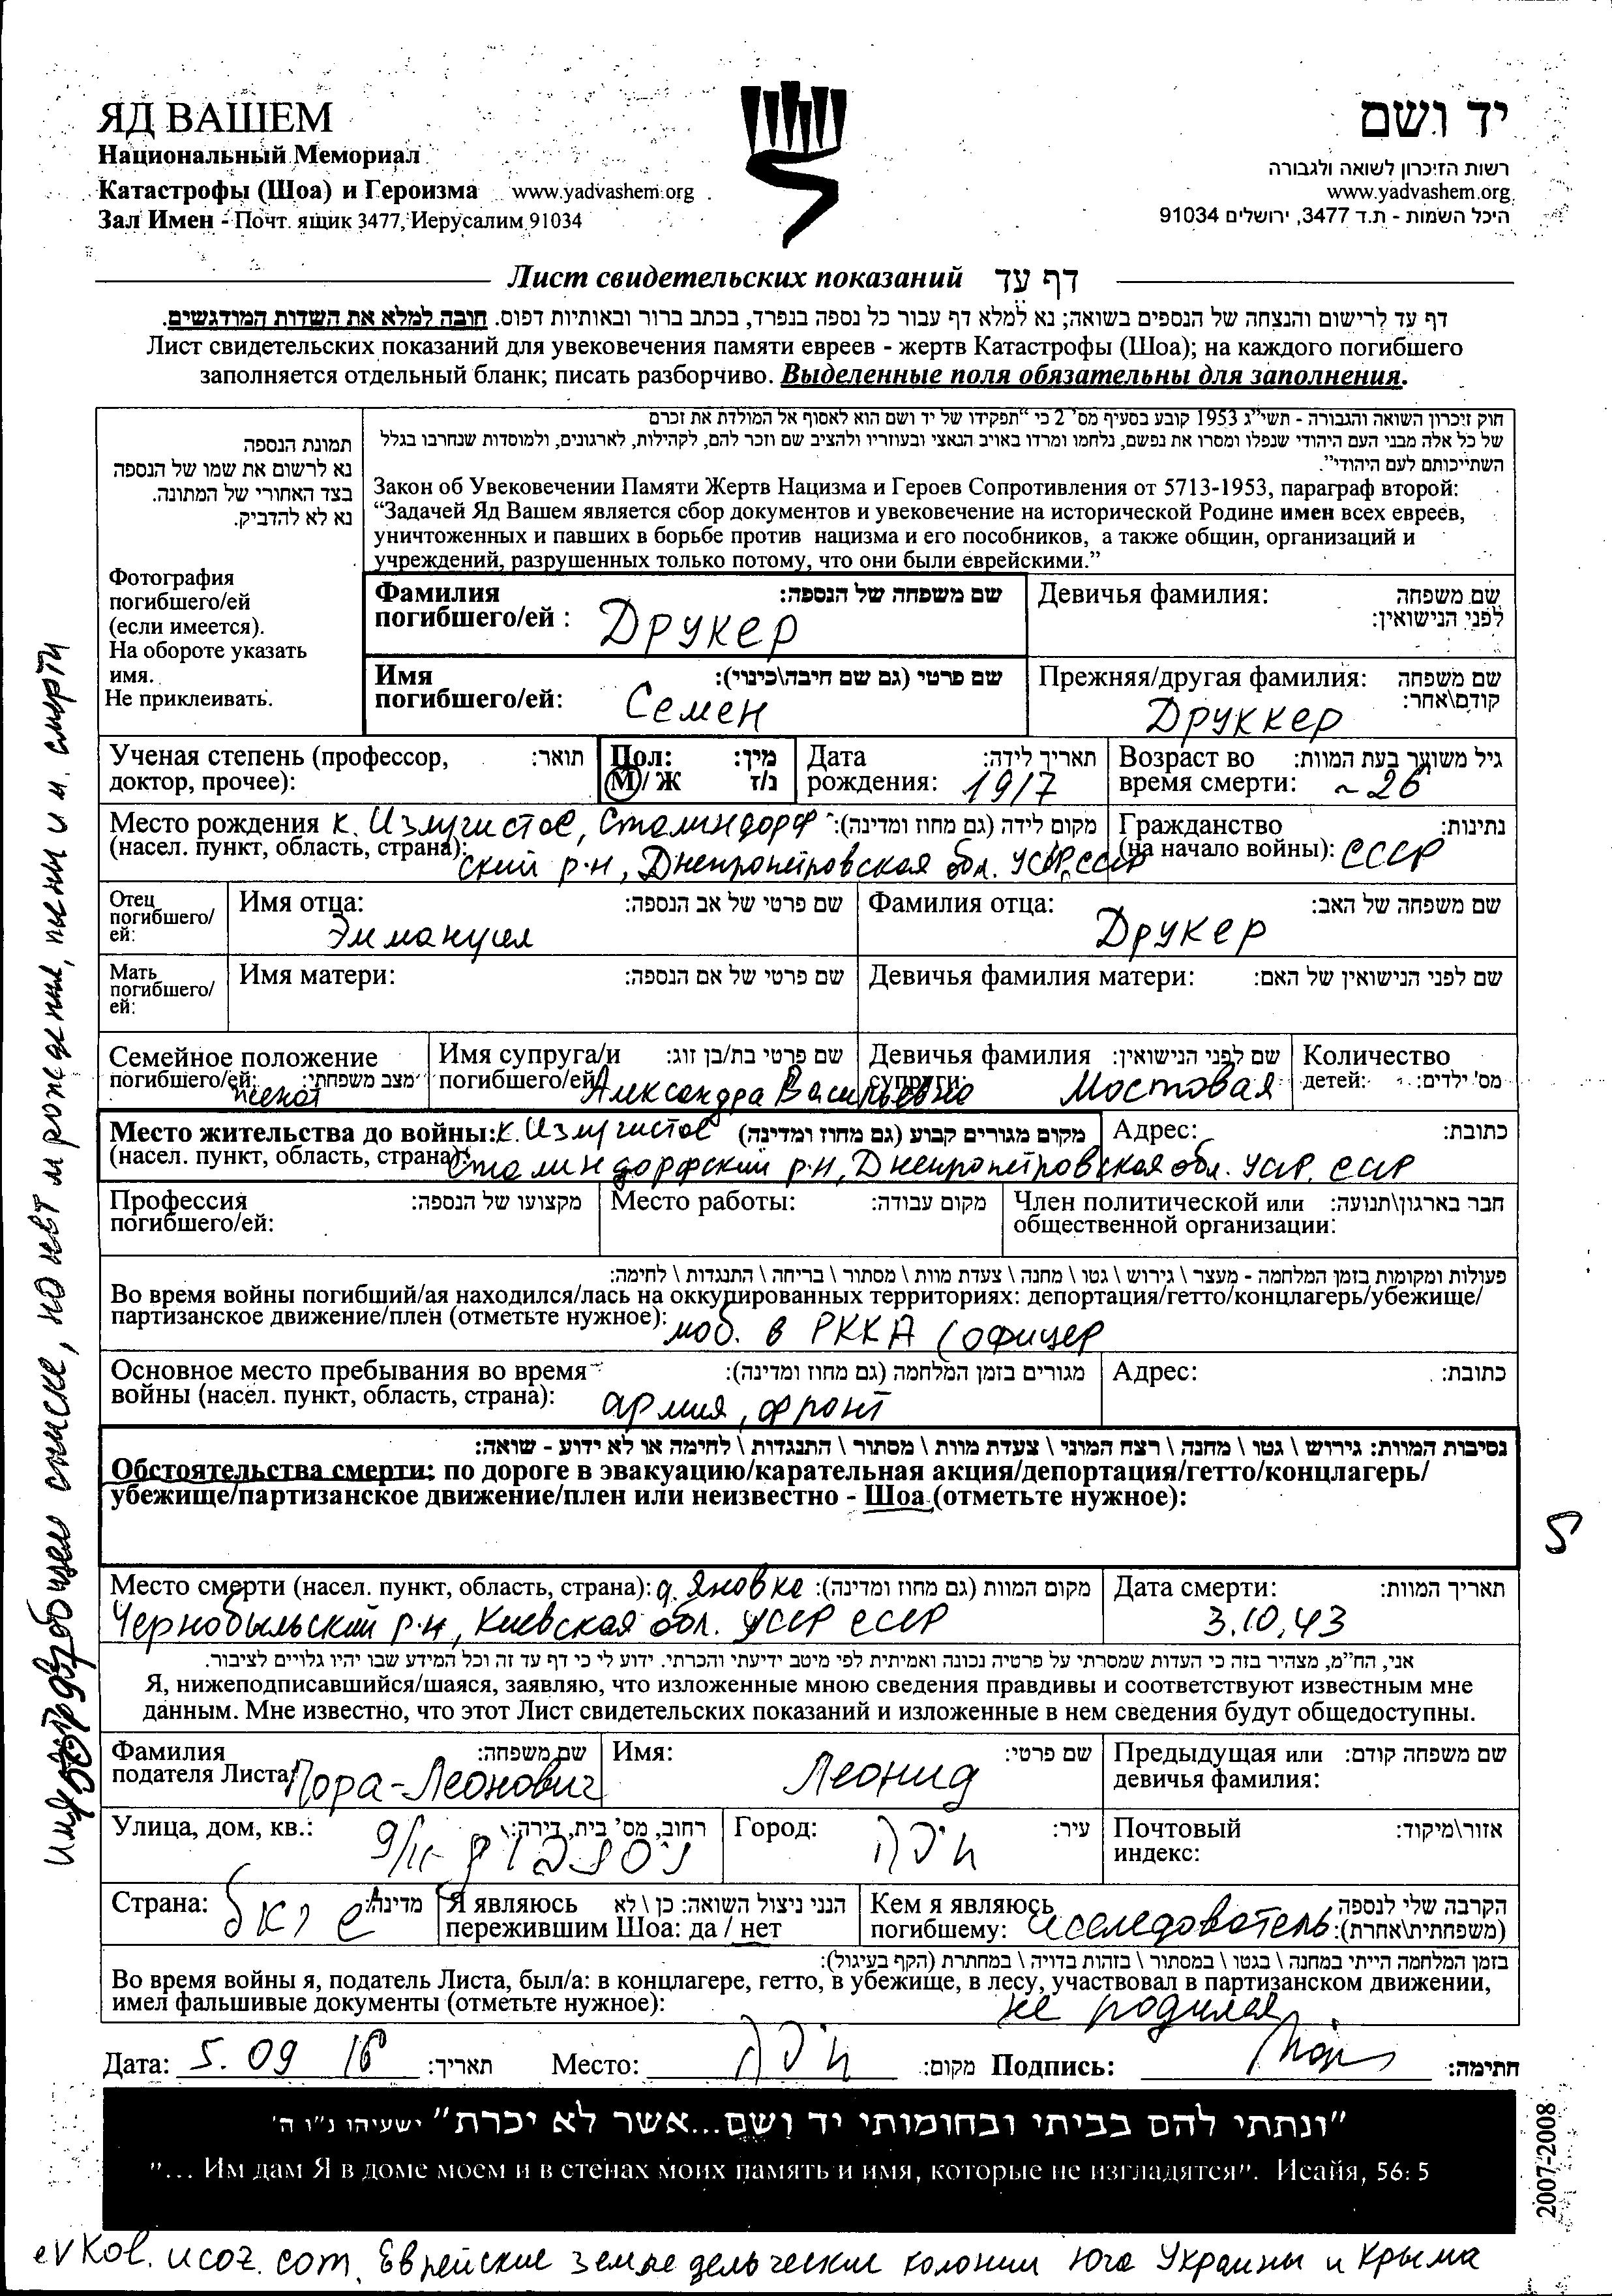 ЯД ВАШЕМ
Национальный Мемориал
Катастрофы (Шоа) и Героизма www.yadvashem.org
Зал Имен - Почт. ящик 3477, Иерусалим 91034
יד ושם
רשות הזיכרון לשואה ולגבורה
www.yadvashem.org
היכל השמות - ת.ד 3477, ירושלים 91034
Лист свидетельских показаний דף עד
דף עד לרישום והנצחה של הנספים בשואה; נא למלא דף עבור כל נספה בנפרד, בכתב ברור ובאותיות דפוס. חובה למלא את השדות המודגשים.
Лист свидетельских показаний для увековечения памяти евреев - жертв Катастрофы (Шоа); на каждого погибшего
заполняется отдельный бланк; писать разборчиво. Выделенные поля обязательны для заполнения.
תמונת הנספה
נא לרשום את שמו של הנספה
בצד האחורי של המתונה.
נא לא להדביק.
Фотография
погибшего/ей
(если имеется).
На обороте указать
имя.
Не приклеивать.
חוק זיכרון השואה והגבורה - תשי"ג 1953 קובע בסעיף מס' 2 כי "תפקידו של יד ושם הוא לאסוף אל המולדת את זכרם
של כל אלה מבני העם היהודי שנפלו ומסרו את נפשם, נלחמו ומרדו באויב הנאצי ובעוזריו ולהציב שם וזכר להם, לקהילות, לארגונים, ולמוסדות שנחרבו בגלל
השתייכותם לעם היהודי".
Закон об Увековечении Памяти Жертв Нацизма и Героев Сопротивления от 5713-1953, параграф второй:
“Задачей Яд Вашем является сбор документов и увековечение на исторической Родине имен всех евреев,
уничтоженных и павших в борьбе против нацизма и его пособников, а также общин, организаций и
учреждений, разрушенных только потому, что они были еврейскими.”
Фамилия שם משפחה של הנספה:
погибшего/ей : Друкер
Девичья фамилия: שם משפחה
לפני הנישואין:
Имя שם פרטי (גם שם חיבה\כינוי):
погибшего/ей: Семен
Прежняя/другая фамилия: שם משפחה
קודם\אחר:
Друккер
Ученая степень (профессор, תואר:
доктор, прочее):
Пол: מין:
М/ Ж נ/ז
Дата תאריך לידה:
рождения: 1917
Возраст во גיל משוער בעת המוות:
время смерти: ~26
Место рождения к. Излучистое, Сталиндорф מקום לידה (גם מחוז ומדינה):
(насел. пункт, область, страна): ский р-н, Днепропетровская обл. УССР, СССР
Гражданство נתינות:
(на начало войны): СССР
Отец
погибшего/
ей:
Имя отца: שם פרטי של אב הנספה:
Эммануил
Фамилия отца: שם משפחה של האב:
Друкер
Мать
погибшего/
ей:
Имя матери: שם פרטי של אם הנספה:
Девичья фамилия матери: שם לפני הנישואין של האם:
Семейное положение
погибшего/ей: מצב משפחתי:
женат
Имя супруга/и שם פרטי בת/בן זוג:
погибшего/ей Александра Васильевна
Девичья фамилия שם לפני הנישואין:
супруги: Мостовая
Количество
детей: מס' ילדים:
Место жительства до войны: к. Излучистое מקום מגורים קבוע (גם מחוז ומדינה)
(насел. пункт, область, страна): Сталиндорфский р-н, Днепропетровская обл. УССР, СССР
Адрес: כתובת:
Профессия מקצועו של הנספה:
погибшего/ей:
Место работы: מקום עבודה:
Член политической или חבר בארגון\תנועה:
общественной организации:
פעולות ומקומות בזמן המלחמה - מעצר \ גירוש \ גטו \ מחנה \ צעדת מוות \ מסתור \ בריחה \ התנגדות \ לחימה:
Во время войны погибший/ая находился/лась на оккупированных территориях: депортация/гетто/концлагерь/убежище/
партизанское движение/плен (отметьте нужное): моб. в РККА (офицер
Основное место пребывания во время מגורים בזמן המלחמה (גם מחוז ומדינה):
войны (насел. пункт, область, страна): армия, фронт
Адрес: כתובת:
נסיבות המוות: גירוש \ גטו \ מחנה \ רצח המוני \ צעדת מוות \ מסתור \ התנגדות \ לחימה או לא ידוע - שואה:
Обстоятельства смерти: по дороге в эвакуацию/карательная акция/депортация/гетто/концлагерь/
убежище/партизанское движение/плен или неизвестно - Шоа (отметьте нужное):
Место смерти (насел. пункт, область, страна): д. Яновка מקום המוות (גם מחוז ומדינה):
Чернобыльский р-н, Киевская обл. УССР СССР
Дата смерти: תאריך המוות:
3.10.43
אני, הח"מ, מצהיר בזה כי העדות שמסרתי על פרטיה נכונה ואמיתית לפי מיטב ידיעתי והכרתי. ידוע לי כי דף עד זה וכל המידע שבו יהיו גלויים לציבור.
Я, нижеподписавшийся/шаяся, заявляю, что изложенные мною сведения правдивы и соответствуют известным мне
данным. Мне известно, что этот Лист свидетельских показаний и изложенные в нем сведения будут общедоступны.
Фамилия שם משפחה:
подателя Листа: Пора-Леонович
Имя: שם פרטי:
Леонид
Предыдущая или שם משפחה קודם:
девичья фамилия:
Улица, дом, кв.: רחוב, מס' בית, דירה:
Город: עיר:
חיפה
Почтовый אזור\מיקוד:
индекс:
Страна: מדינה:
Я являюсь הנני ניצול השואה: כן \ לא
пережившим Шоа: да / нет
Кем я являюсь הקרבה שלי לנספה
погибшему: исследователь (משפחתית\אחרת):
בזמן המלחמה הייתי במחנה \ בגטו \ במסתור \ בזהות בדויה \ במחתרת (הקף בעיגול):
Во время войны я, податель Листа, был/а: в концлагере, гетто, в убежище, в лесу, участвовал в партизанском движении,
имел фальшивые документы (отметьте нужное): не родился
Дата: 5.09 16 תאריך: Место: חיפה מקום: Подпись: חתימה:
"ונתתי להם בביתי ובחומותי יד ושם...אשר לא יכרת" ישעיהו נ"ו ה'
"... Им дам Я в доме моем и в стенах моих память и имя, которые не изгладятся". Исайя, 56: 5
2007-2008
evkol.ucoz.com, Еврейские земледельческие колонии Юга Украины и Крыма
общем списке, но нет м рождения, жены и м. смерти
5